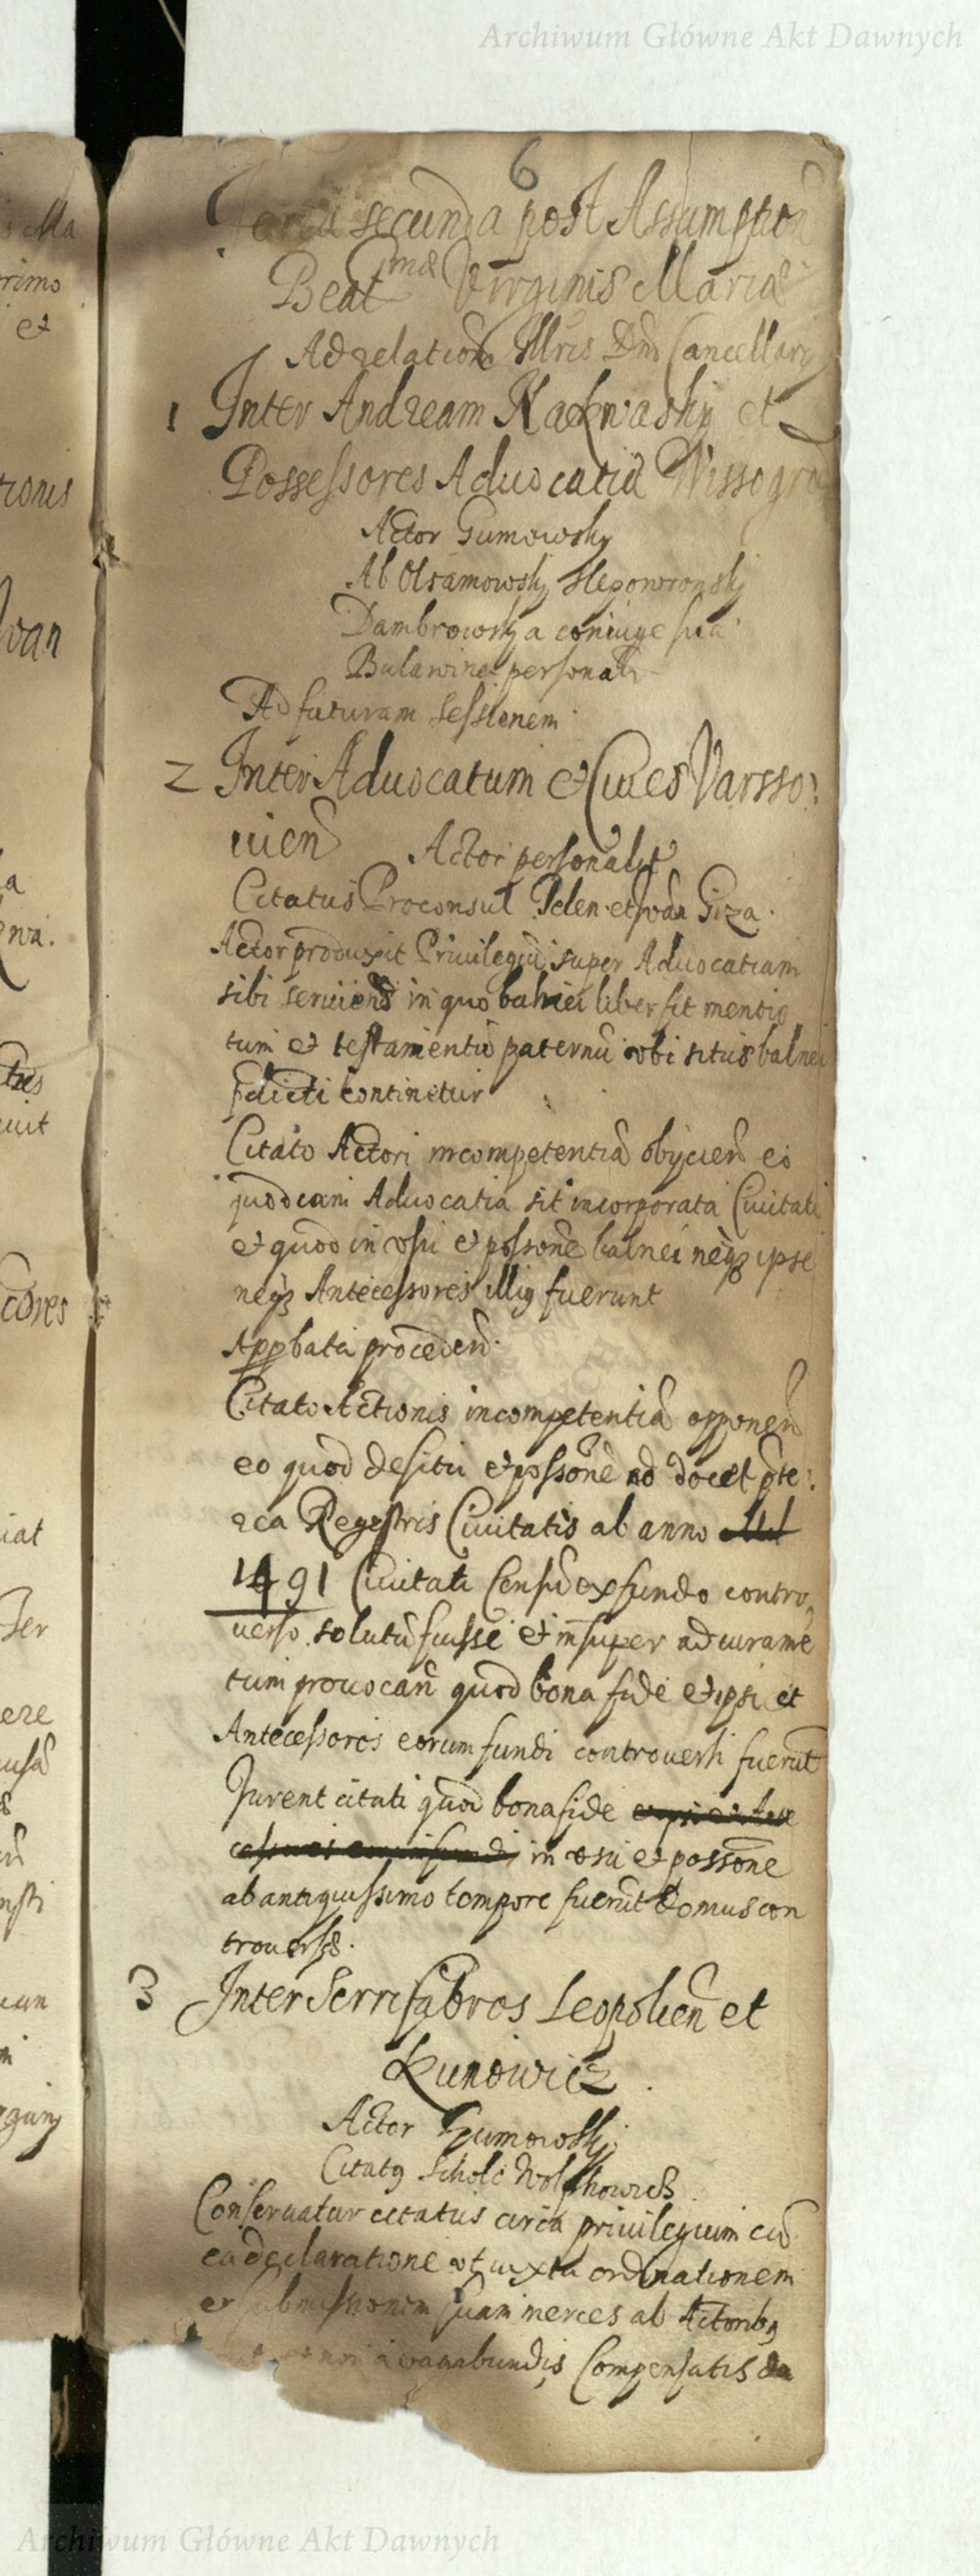 Archiwum Główne Akt Dawnych
6
Feria secunda post Assumption
Beatmæ Virginis Mariæ
Ad relatione Illris Dni Cancellarij
1 Inter Andream Nakwasky et
Possessores Aduocatiæ Wissogro
Actor Gumowsky
Ab Olsamowskj Slepowronskj
Dambrowsky a coniuge sua
Bulawine personalr
Ad futuram sessionem
2 Inter Aduocatum et Ciues Varsso:
uien Actor personalit
Citatus Proconsul Pelen et Giza.
Actor produxit Priuilegiu super Aduocatiam
sibi seruiens in quo balnei liber fit mentio
tum et testamentu paternu ubi situs balnei
pdicti continetur
Citato Actori incompetentia obycien eo
quod eam Aduocatia sit incorporata Ciuitati
et quod in usu et possone balnei neqz ipse
neqz Antecessores illius fuerunt
Appbata proceden
Citato Actionis incompetentia opponen
eo quod de situ et possone no docet pte:
rea Regestris Ciuitatis ab anno Mil
1491 Ciuitati Censu ex fundo contro,
uerso solutu fuisse et insuper ad iurame
tum prouocan quod bona fide et ipsi et
Antecessores eorum fundi controuersi fuerut
Jurent citati quod bona fide et ipsi et Ante
cessores eorum fundi in usu et possone
ab antiquissimo tempore fuerut Domus con
trouersæ.
3 Inter Serrifabros Leopolien et
Kunowicz.
Actor Gumowskj
Citatq Wolfhowicz
Conseruatur citatus circa priuilegium cu
ea declaratione ut iuxta ordinationem
et submissionem suam merces ab Actoribq
et non a vagabundis Compensatis da
Archiwum Główne Akt Dawnych